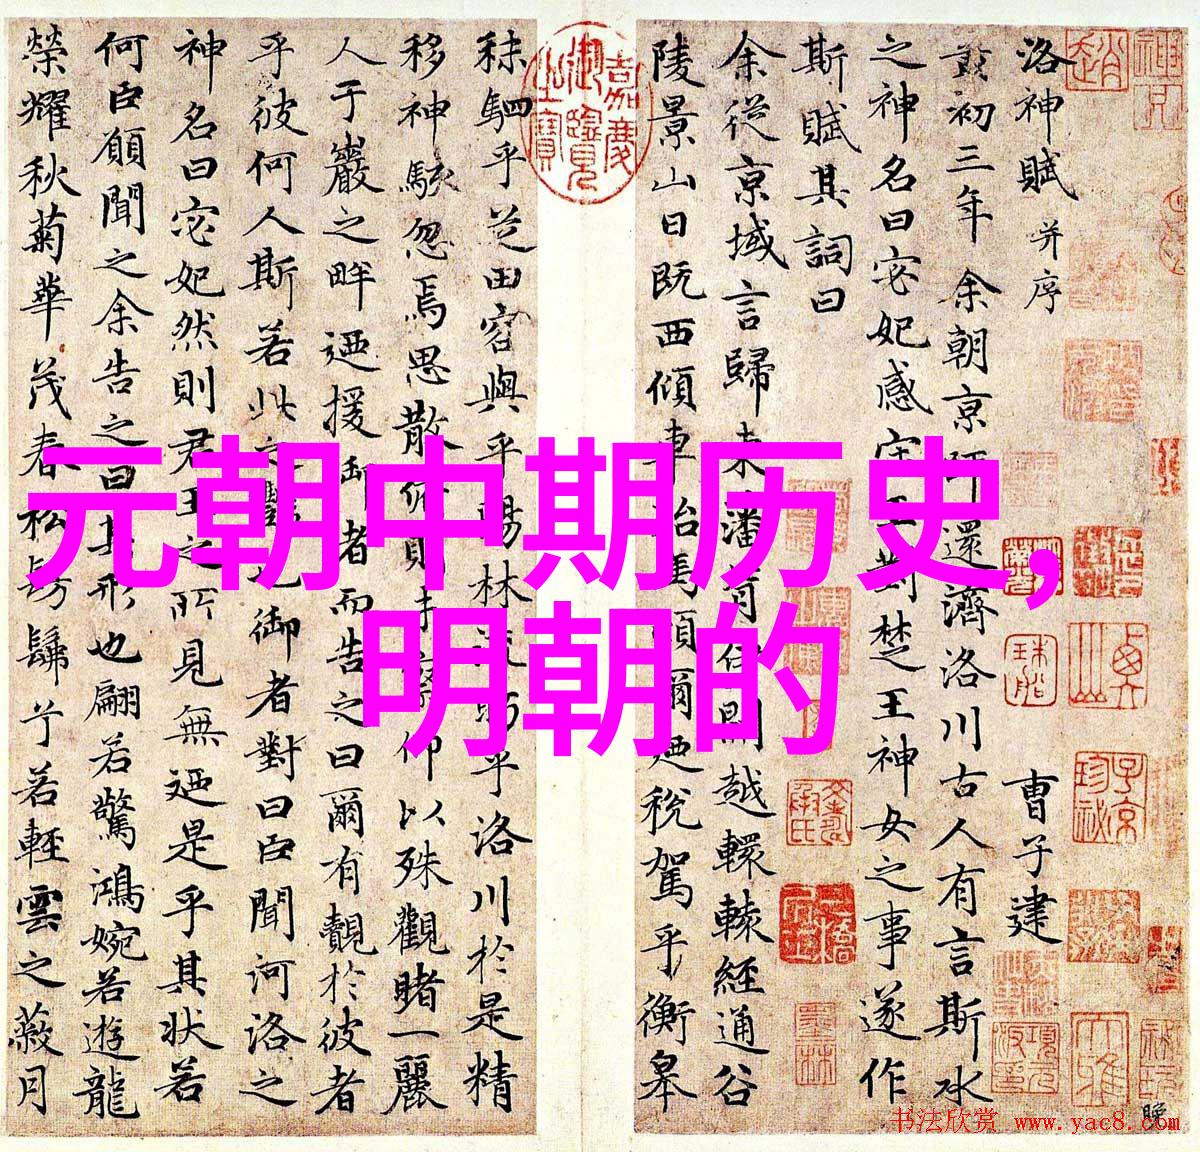 元朝中期历史,
明朝的
洛神賦 并序 曹子建
黃初三年余朝京師還濟洛川古人有言斯水
之神名曰宓妃感宋玉對楚王神女之事遂作
斯賦其詞曰
余從京域言歸東藩背伊闕越轘轅經通谷
陵景山日既西傾車殆馬煩爾迺稅駕乎衡皋
嘉慶御覽之寶
秣駟乎芝田容與乎陽林流眄乎洛川於是精
移神駭忽焉思散俯則未察仰以殊觀睹一麗
人于巖之畔迺援御者而告之曰爾有覿於彼者
乎彼何人斯若此之豔也御者對曰臣聞河洛之
神名曰宓妃然則君王之所見無迺是乎其狀若
何臣願聞之余告之曰其形也翩若驚鴻婉若遊龍
榮耀秋菊華茂春松髣髴兮若輕雲之蔽月
书法欣赏 www.yac8.com